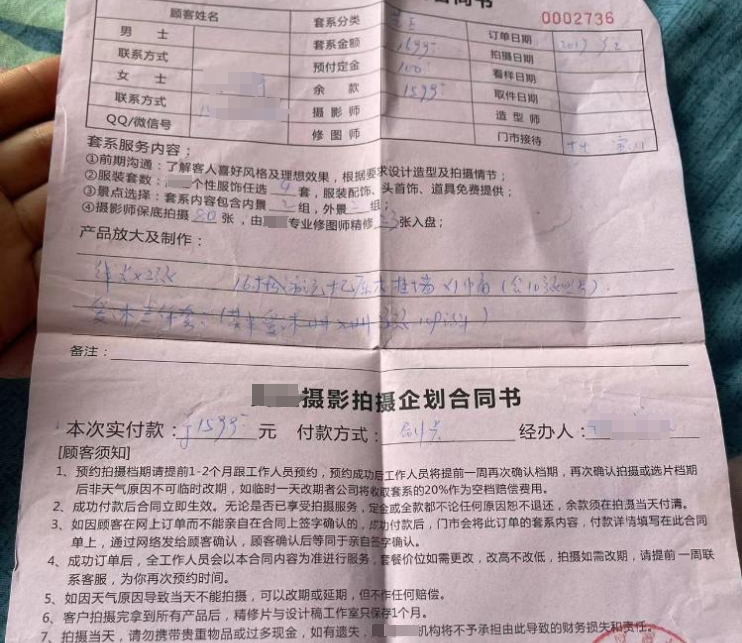 合同书
0002736
顾客姓名 套系分类 订单日期 2017
男 士 套系金额 1699 拍摄日期
联系方式 预付定金 100 看样日期
女 士 余 款 1599 取件日期
联系方式 摄 影 师 造 型 师
QQ/微信号 修 图 师 门市接待
套系服务内容：
①前期沟通：了解客人喜好风格及理想效果，根据要求设计造型及拍摄情节；
②服装套数：个性服饰任选 4 套，服装配饰、头首饰、道具免费提供；
③景点选择：套系内容包含内景 2 组，外景 组；
④摄影师保底拍摄 80 张，由 专业修图师精修 23 张入盘；
产品放大及制作：
备注：
摄影拍摄企划合同书
本次实付款： 1599 元 付款方式： 经办人：
[顾客须知]
1、预约拍摄档期请提前1-2个月跟工作人员预约，预约成功后工作人员将提前一周再次确认档期，再次确认拍摄或选片档期
后非天气原因不可临时改期，如临时一天改期者公司将收取套系的20%作为空档赔偿费用。
2、成功付款后合同立即生效。无论是否已享受拍摄服务，定金或全款都不论任何原因恕不退还，余款须在拍摄当天付清。
3、如因顾客在网上订单而不能亲自在合同上签字确认的，成功付款后，门市会将此订单的套系内容，付款详情填写在此合同
单上，通过网络发给顾客确认，顾客确认后等同于亲自签字确认。
4、成功订单后，全工作人员会以本合同内容为准进行服务，套餐价位如需更改，改高不改低，拍摄如需改期，请提前一周联
系客服，为你再次预约时间。
5、如因天气原因导致当天不能拍摄，可以改期或延期，但不作任何赔偿。
6、客户拍摄完拿到所有产品后，精修片与设计稿工作室只保存1个月。
7、拍摄当天，请勿携带贵重物品或过多现金，如有遗失，机构将不予承担由此导致的财务损失和责任。